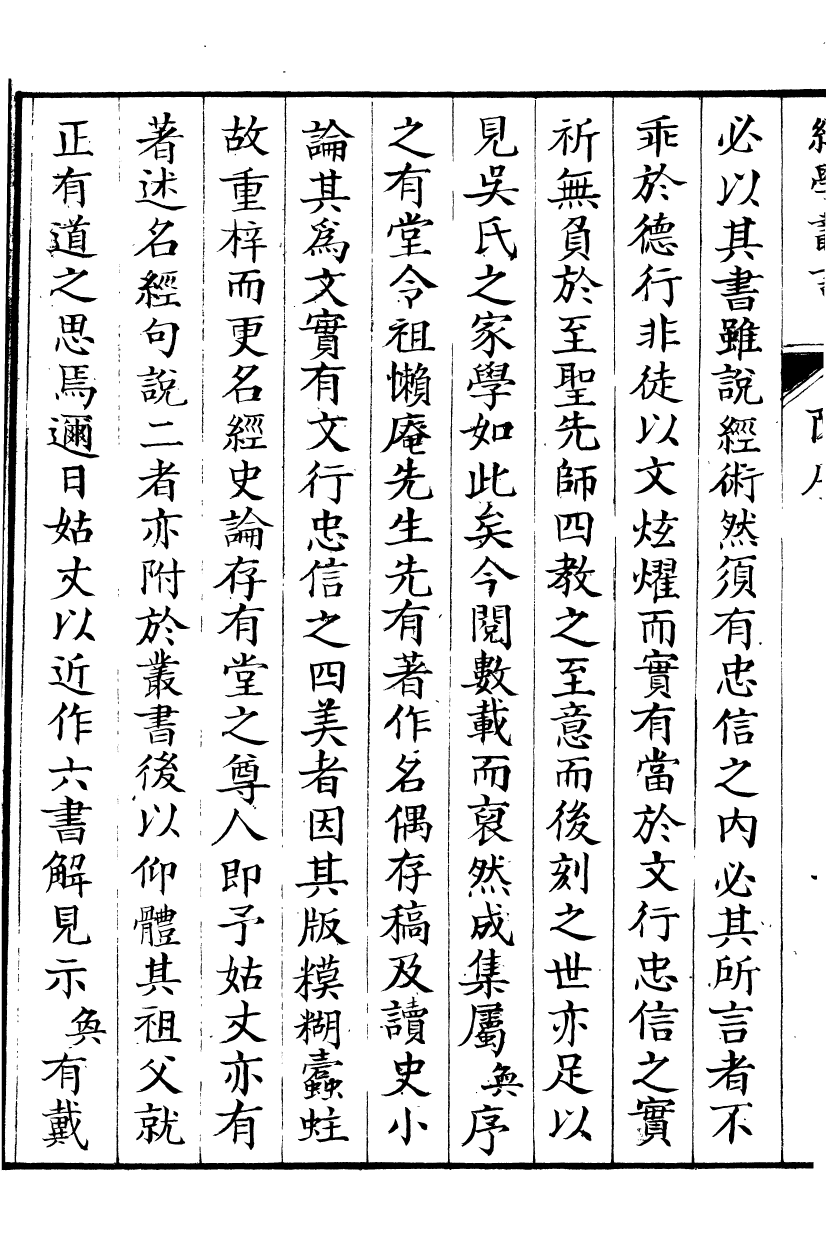 必以其書雖說經術然須有忠信之内必其所言者不
乖於德行非徒以文炫燿而實有當於文行忠信之實
祈無負於至聖先師四教之至意而後刻之世亦足以
見吳氏之家學如此矣今閱數載而裒然成集屬奐序
之有堂令祖懶庵先生先有著作名偶存稿及讀史小
論其爲文實有文行忠信之四美者因其版糢糊蠹蛀
故重梓而更名經史論存有堂之尊人即予姑丈亦有
著述名經句說二者亦附於叢書後以仰體其祖父就
正有道之思焉邇日姑丈以近作六書解見示奐有戴